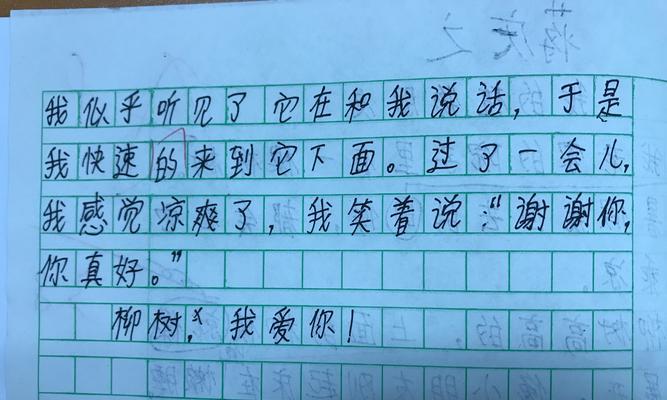 我似乎听见了它在和我说话，于是
我快速的来到它下面。过了一会儿，
我感觉凉爽了，我笑着说：“谢谢你，
你真好。”
柳树，我爱你！